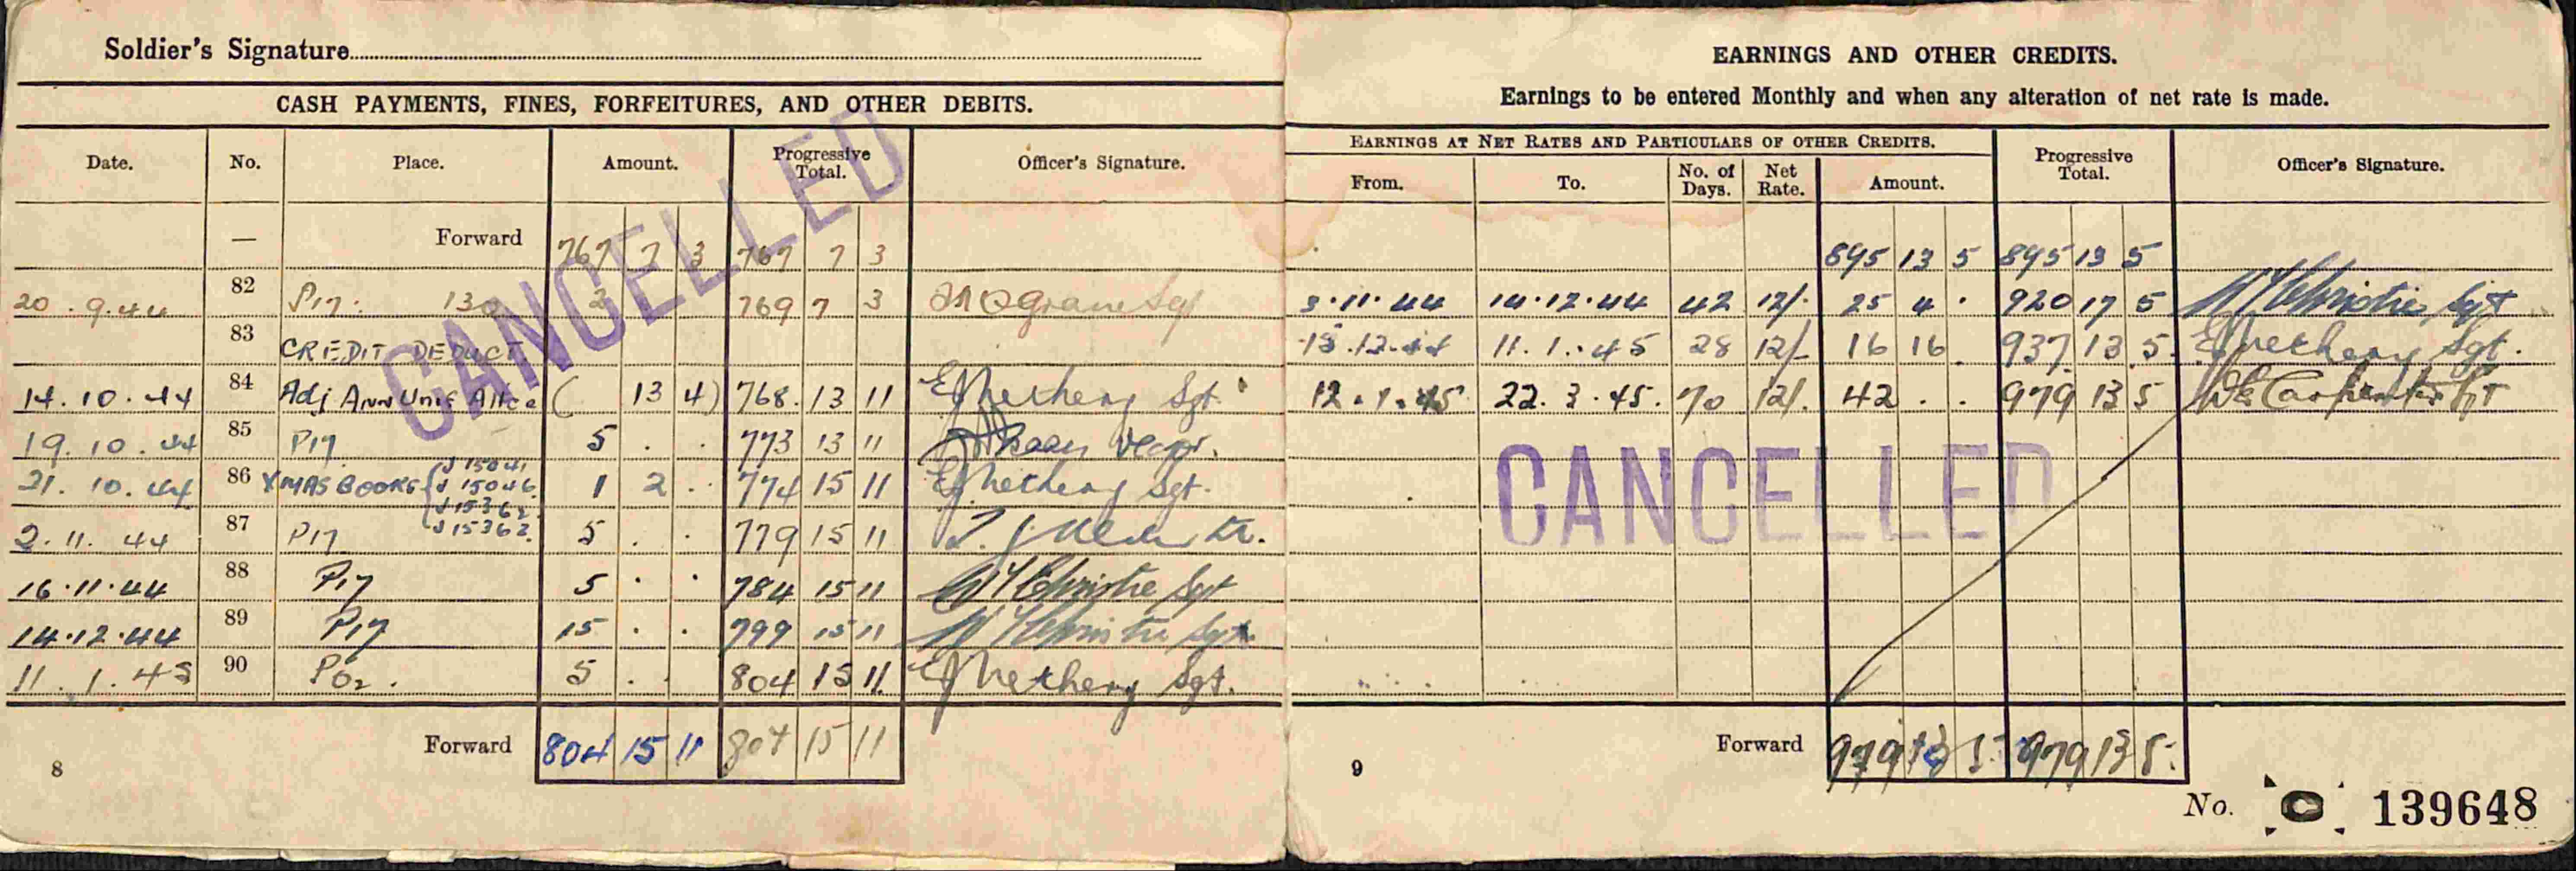 Soldier's Signature
CASH PAYMENTS, FINES, FORFEITURES, AND OTHER DEBITS.
Date. No. Place. Amount. Progressive Total. Officer's Signature.
— Forward 767 7 3 767 7 3
20.9.44 82 P17: 130 2 769 7 3 Sgt
83 CREDIT DEDUCT.
14.10.44 84 Adj Ann Unif Allce ( 13 4) 768.13 11 Sgt.
19.10.44 85 P17 5 . . 773 13 11
21.10.44 86 XMAS BOOKS { J 15041 J 15046 J 15362 J 15363 1 2 . 774 15 11 Sgt.
2.11.44 87 P17 5 . . 779 15 11 Lt.
16.11.44 88 P17 5 . . 784 15 11 Christie Sgt
14.12.44 89 P17 15 . . 799 15 11 Christie Sgt.
11.1.45 90 P02. 5 . . 804 15 11. Sgt.
Forward 804 15 11 804 15 11
8
CANCELLED
EARNINGS AND OTHER CREDITS.
Earnings to be entered Monthly and when any alteration of net rate is made.
EARNINGS AT NET RATES AND PARTICULARS OF OTHER CREDITS.
From. To. No. of Days. Net Rate. Amount. Progressive Total. Officer's Signature.
895 13 5 895 13 5
3.11.44 14.12.44 42 12/. 25 4 . 920 17 5 Christie Sgt
15.12.44 11.1.45 28 12/- 16 16 . 937 13 5. Sgt.
12.1.45 22.3.45. 70 12/. 42 . . 979 13 5 Carpenter
CANCELLED
Forward 979 13 5. 979 13 5.
9
No. C 139648